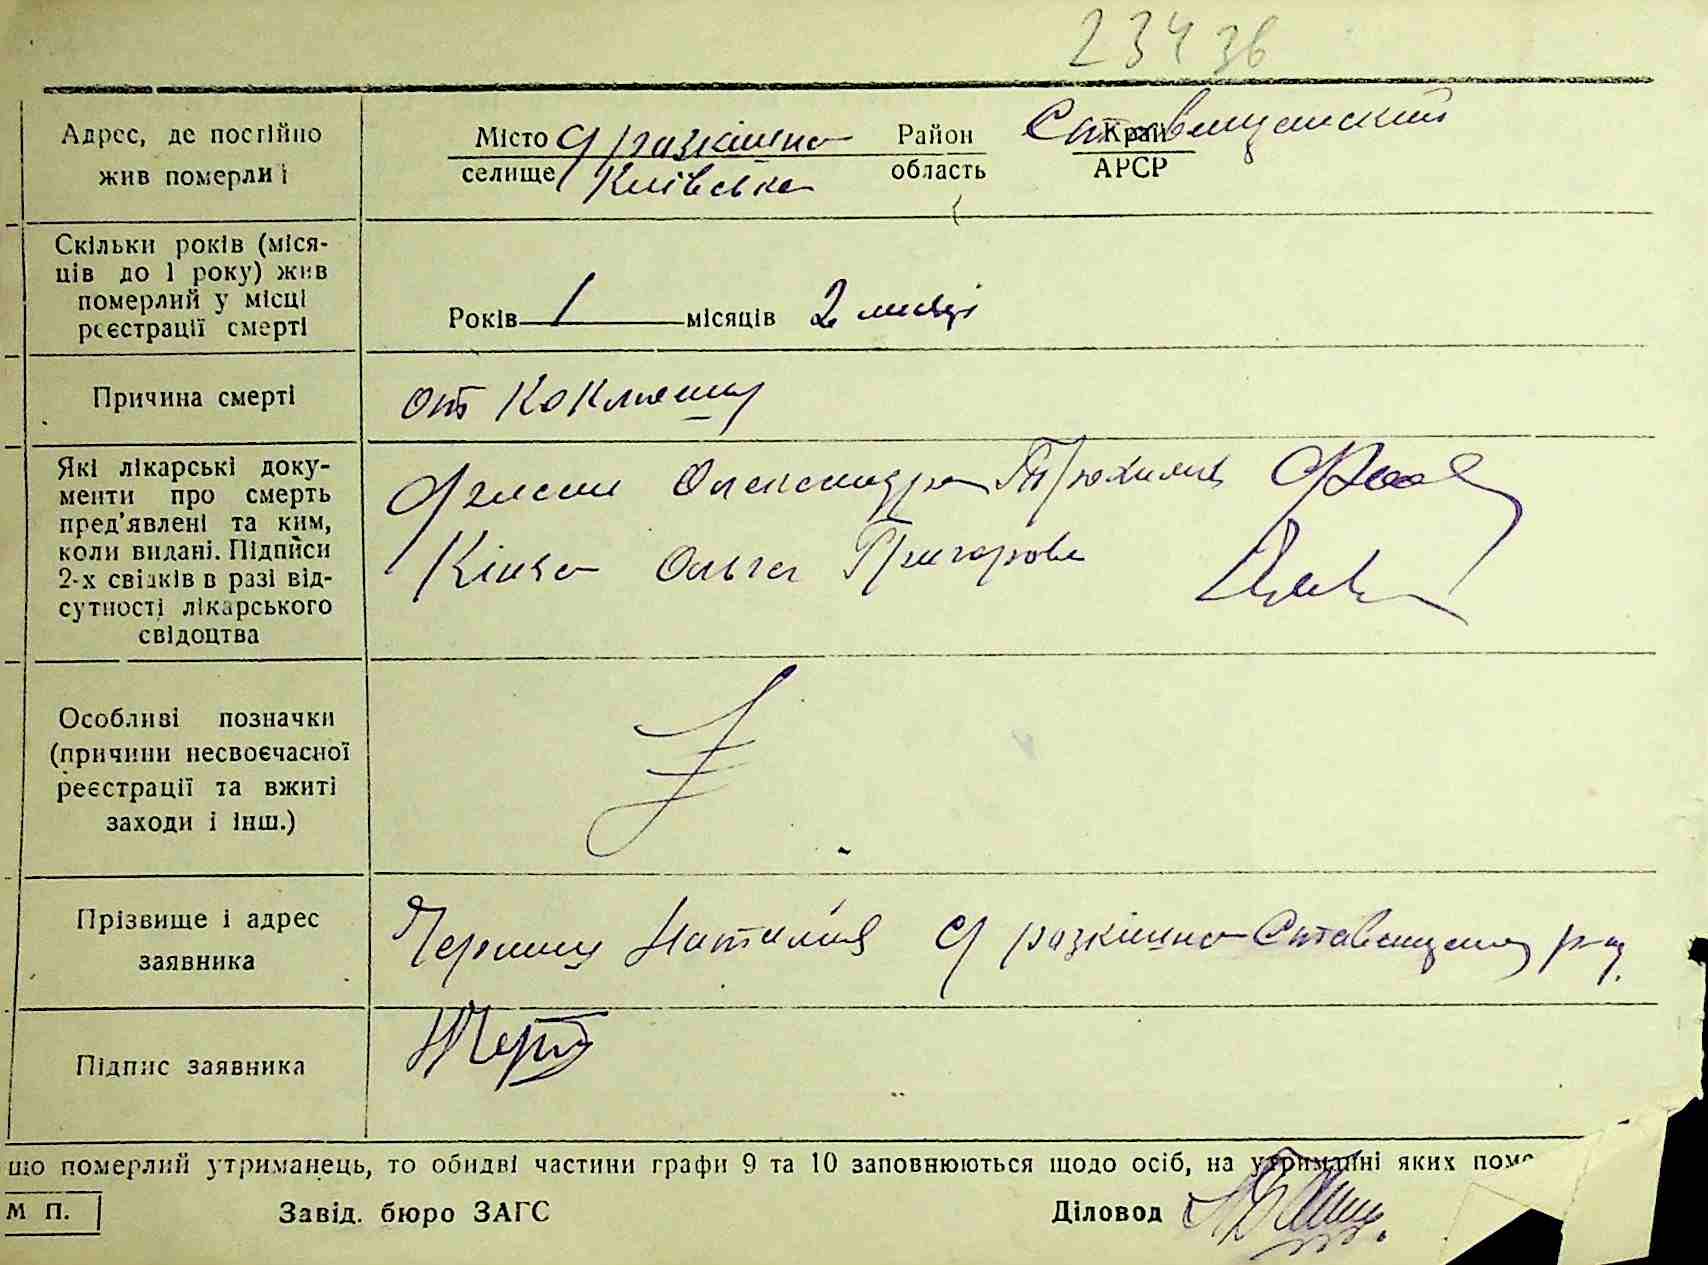 234 зв
Адрес, де постійно
жив померлий
Місто с Разкішно Район Ставищанский Край
селище Київська область АРСР
Скільки років (міся-
ців до 1 року) жив
померлий у місці
реєстрації смерті
Років 1 місяців 2 місяці
Причина смерті
от Коклюшу
Які лікарські доку-
менти про смерть
пред'явлені та ким,
коли видані. Підписи
2-х свідків в разі від-
сутності лікарського
свідоцтва
Олександра
Ольга Григорова
Особливі позначки
(причини несвоєчасної
реєстрації та вжиті
заходи і інш.)
Прізвище і адрес
заявника
Наталия с разкішно
Підпис заявника
що померлий утриманець, то обидві частини графи 9 та 10 заповнюються щодо осіб, на утриманні яких
М П.
Завід. бюро ЗАГС
Діловод